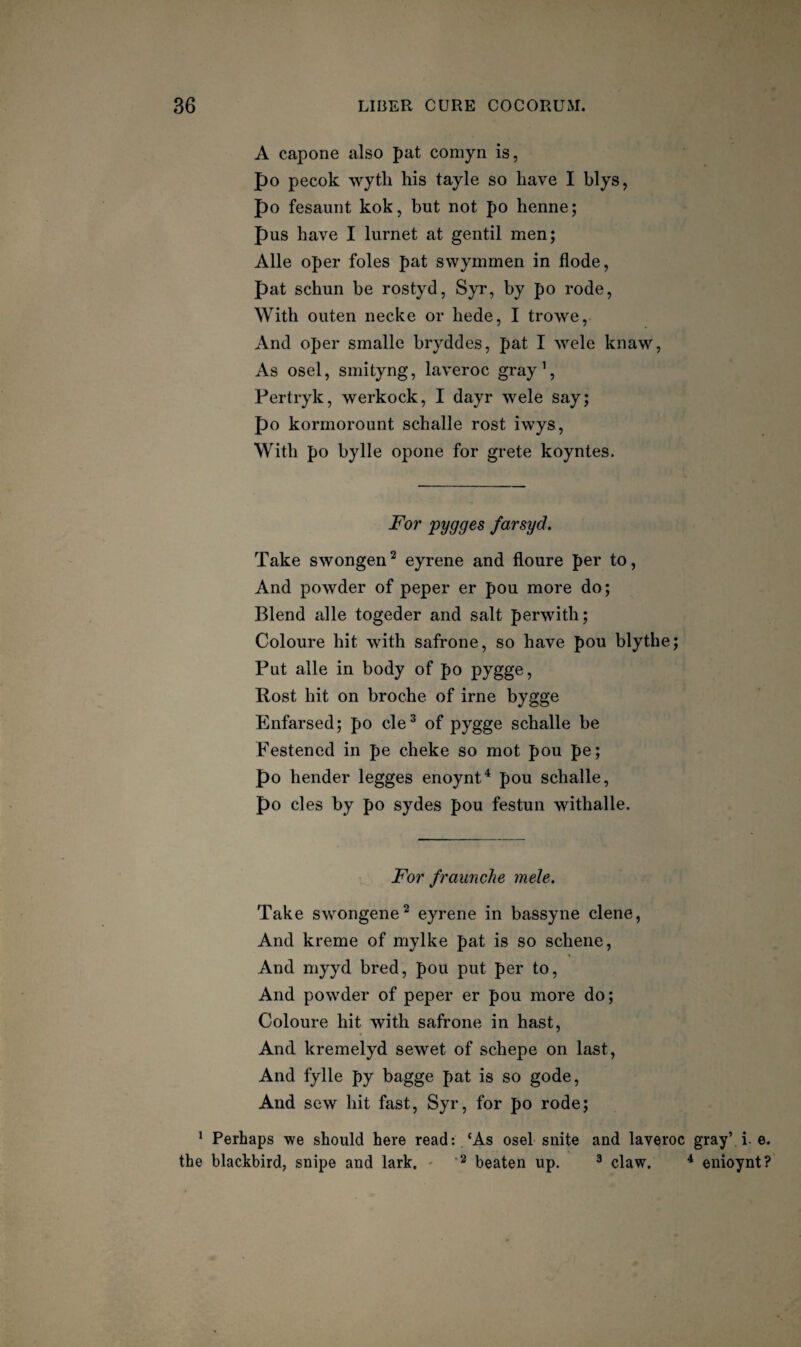 36 LIBER CURE COCORUM.
A capone also þat comyn is,
Þo pecok wyth his tayle so have I blys,
Þo fesaunt kok, but not þo henne;
Þus have I lurnet at gentil men;
Alle oþer foles þat swymmen in flode,
Þat schun be rostyd, Syr, by þo rode,
With outen necke or hede, I trowe,
And oþer smalle bryddes, þat I wele knaw,
As osel, smityng, laveroc gray¹,
Pertryk, werkock, I dayr wele say;
Þo kormorount schalle rost iwys,
With þo bylle opone for grete koyntes.
For pygges farsyd.
Take swongen² eyrene and floure þer to,
And powder of peper er þou more do;
Blend alle togeder and salt þerwith;
Coloure hit with safrone, so have þou blythe;
Put alle in body of þo pygge,
Rost hit on broche of irne bygge
Enfarsed; þo cle³ of pygge schalle be
Festened in þe cheke so mot þou þe;
Þo hender legges enoynt⁴ þou schalle,
Þo cles by þo sydes þou festun withalle.
For fraunche mele.
Take swongene² eyrene in bassyne clene,
And kreme of mylke þat is so schene,
And myyd bred, þou put þer to,
And powder of peper er þou more do;
Coloure hit with safrone in hast,
And kremelyd sewet of schepe on last,
And fylle þy bagge þat is so gode,
And sew hit fast, Syr, for þo rode;
¹ Perhaps we should here read: ‘As osel snite and laveroc gray’ i. e.
the blackbird, snipe and lark. ² beaten up. ³ claw. ⁴ enioynt?